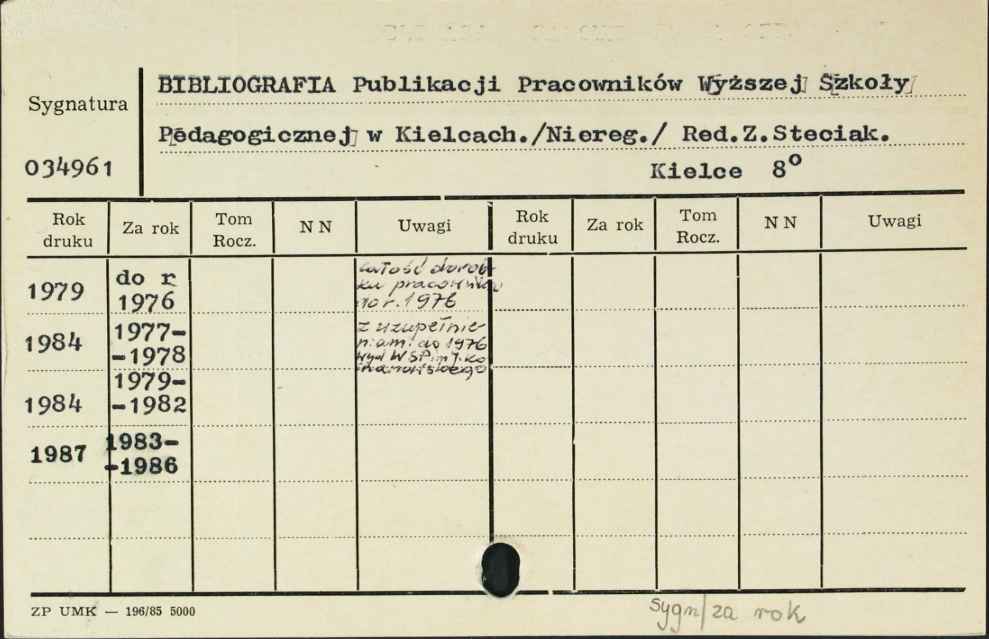 BIBLIOGRAFIA Publikacji Pracowników Wyższej Szkoły
Sygnatura
Pedagogicznej w Kielcach./Niereg./ Red.Z.Steciak.
034961
Kielce 8º
Rok druku Za rok Tom Rocz. N N Uwagi Rok druku Za rok Tom Rocz. N N Uwagi
1979 do r 1976 całość dorob-
ku pracowników
do r. 1976
1984 1977-
-1978 z uzupełnie
niami do 1976
wyd WSP im J. Ko
chanowskiego
1984 1979-
-1982
1987 1983-
-1986
ZP UMK — 196/85 5000
sygn/za rok